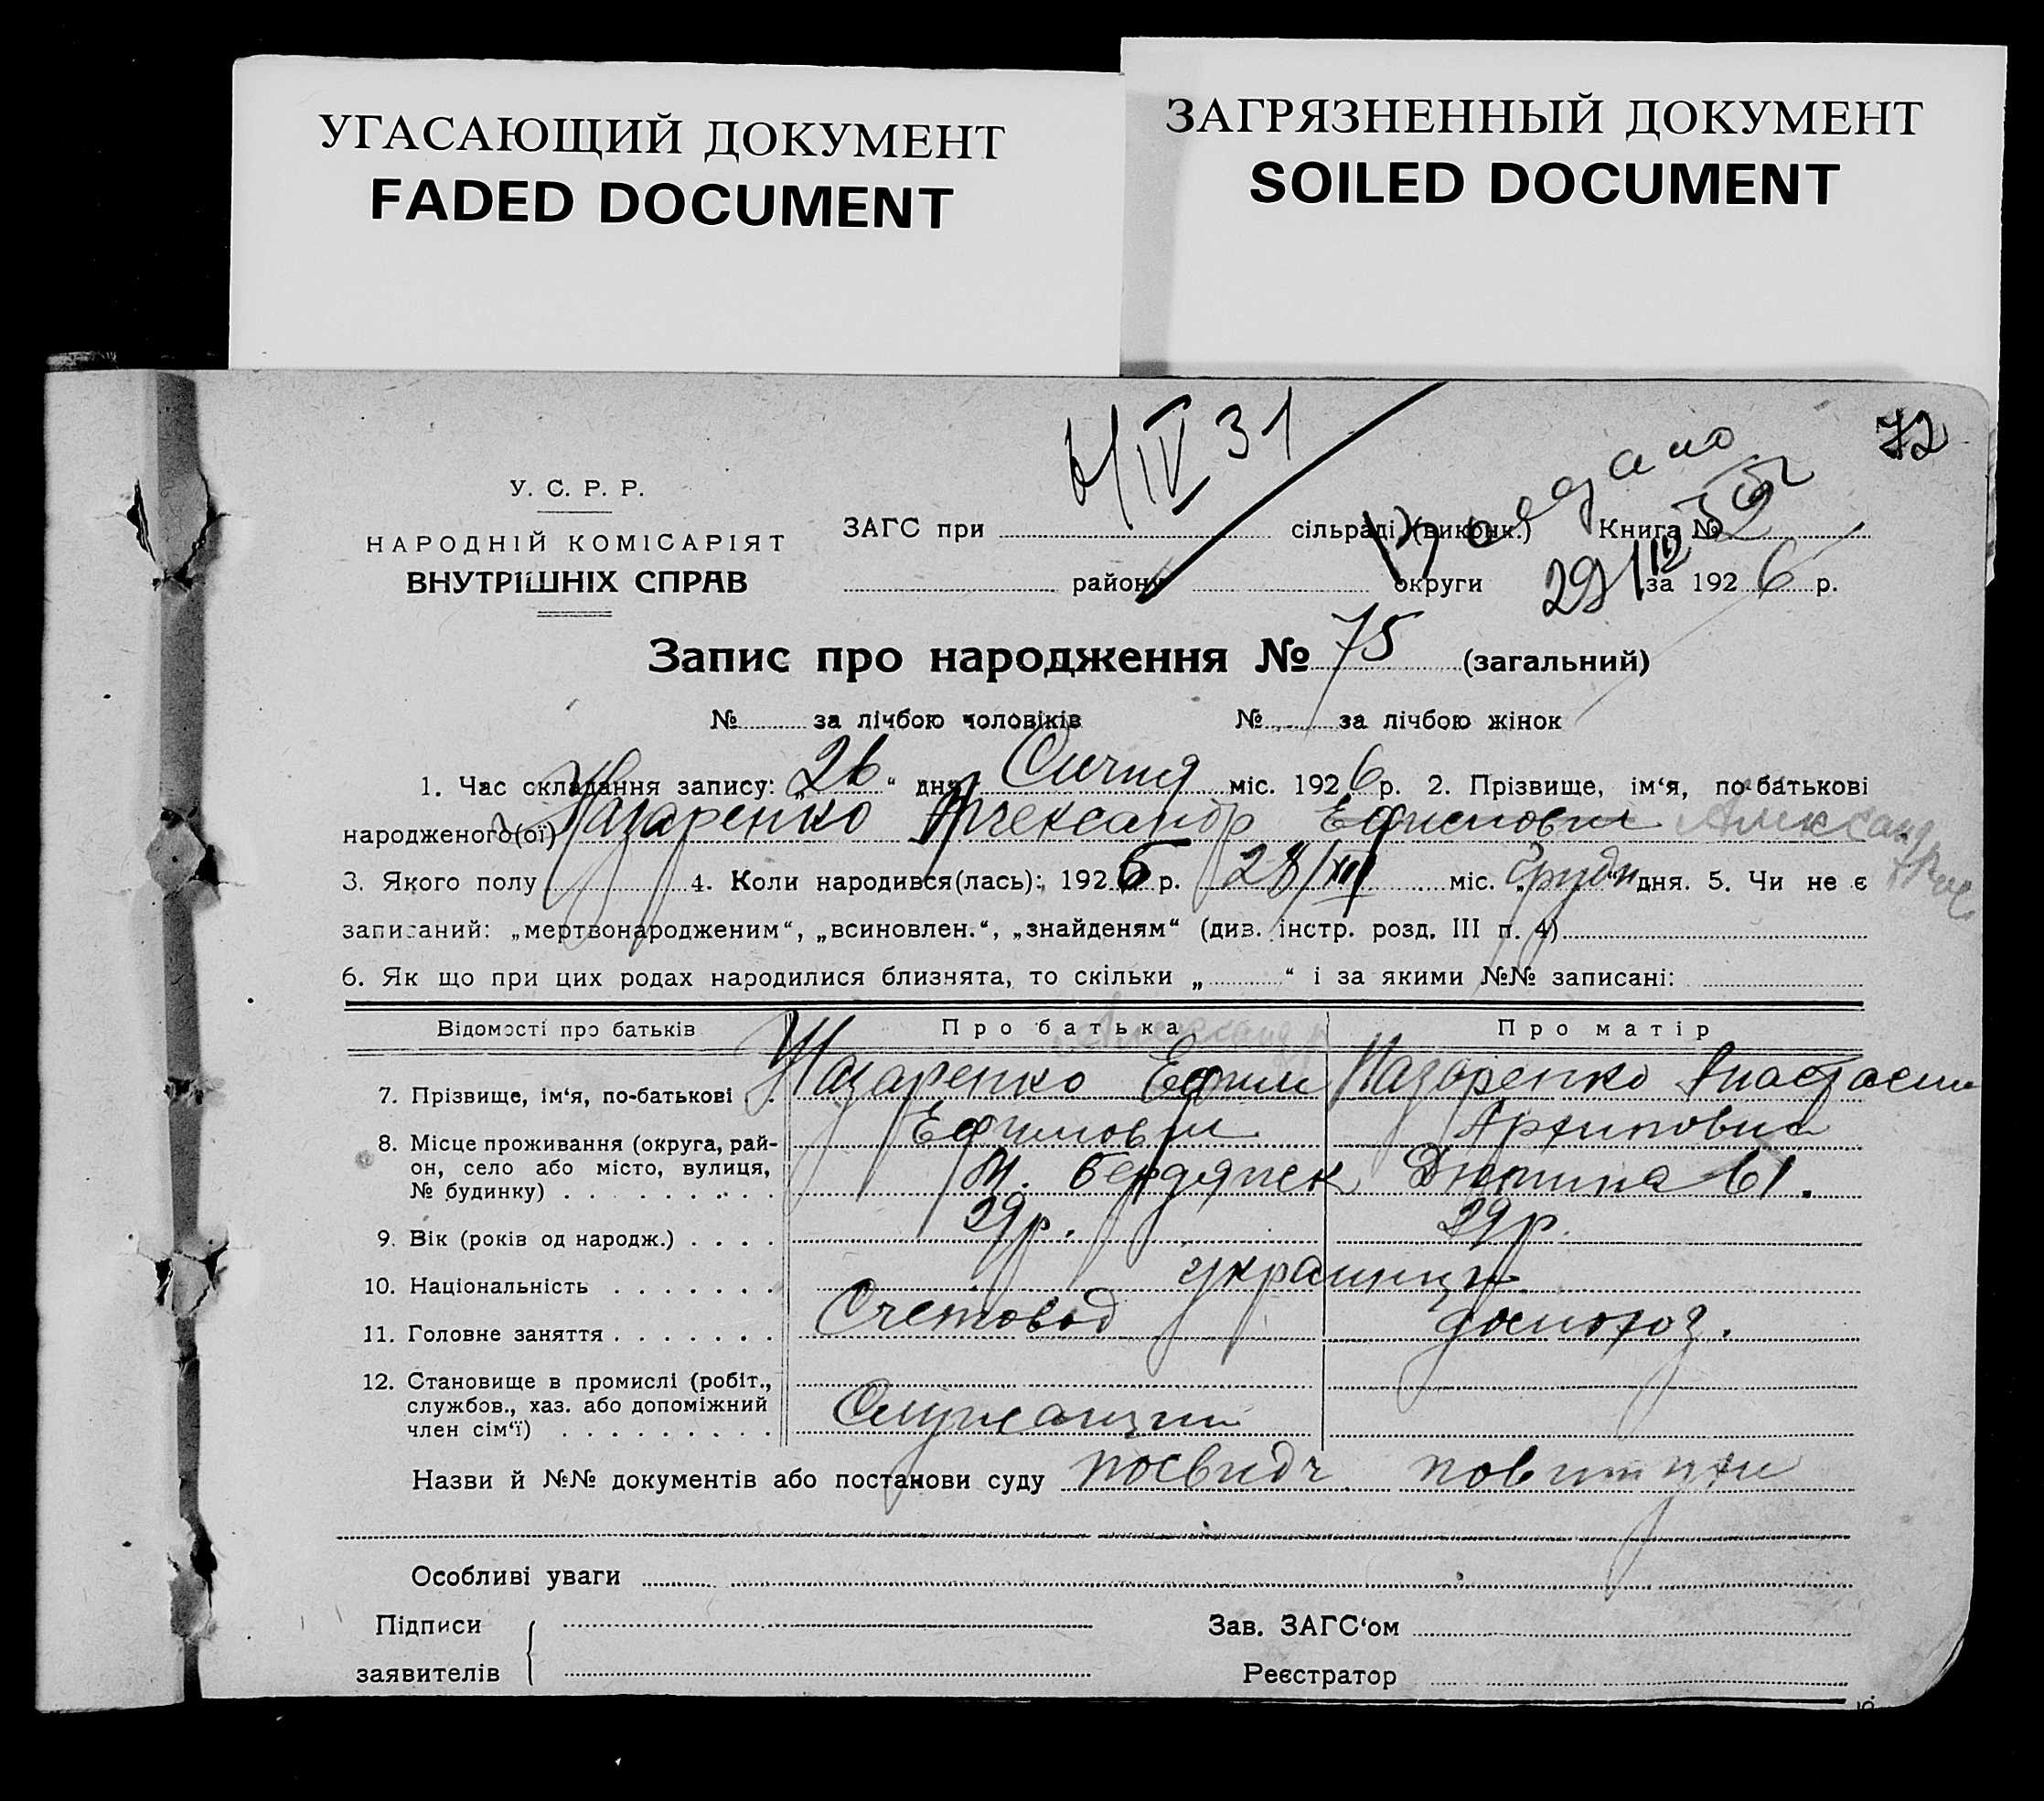 УГАСАЮЩИЙ ДОКУМЕНТ
FADED DOCUMENT
ЗАГРЯЗНЕННЫЙ ДОКУМЕНТ
SOILED DOCUMENT
72
/IV 31
У. С. Р. Р.
НАРОДНІЙ КОМІСАРІЯТ
ВНУТРІШНІХ СПРАВ
ЗАГС при сільраді (виконк.) Книга №
району округи за 1926 р.
29/III
Запис про народження № 75 (загальний)
№ за лічбою чоловіків № за лічбою жінок
1. Час складання запису: „26“ дня Сичня міс. 1926 р. 2. Прізвище, ім‘я, по-батькові
народженого(ої) Назаренко Александр Ефимович Александрович
3. Якого полу 4. Коли народився(лась): 1925 р. 28/XII міс. „Грудн“ дня. 5. Чи не є
записаний: „мертвонародженим“, „всиновлен.“, „знайденям“ (див. інстр. розд. III п. 4)
6. Як що при цих родах народилися близнята, то скільки „ “ і за якими №№ записані:
Відомості про батьків Про батька Про матір
Александр
7. Прізвище, ім‘я, по-батькові Назаренко Ефим Назаренко Анастасии
Ефимович Архиповна
8. Місце проживання (округа, рай-
он, село або місто, вулиця,
№ будинку) М. Бердянск 61.
9. Вік (років од народж.) 29 р. 29 р.
10. Національність украинци
11. Головне заняття Счетовод домохоз.
12. Становище в промислі (робіт.,
службов., хаз. або допоміжний
член сім‘ї) Служащий
Назви й №№ документів або постанови суду посвидч. повитухи
Особливі уваги
Підписи
заявителів
Зав. ЗАГС‘ом
Реєстратор